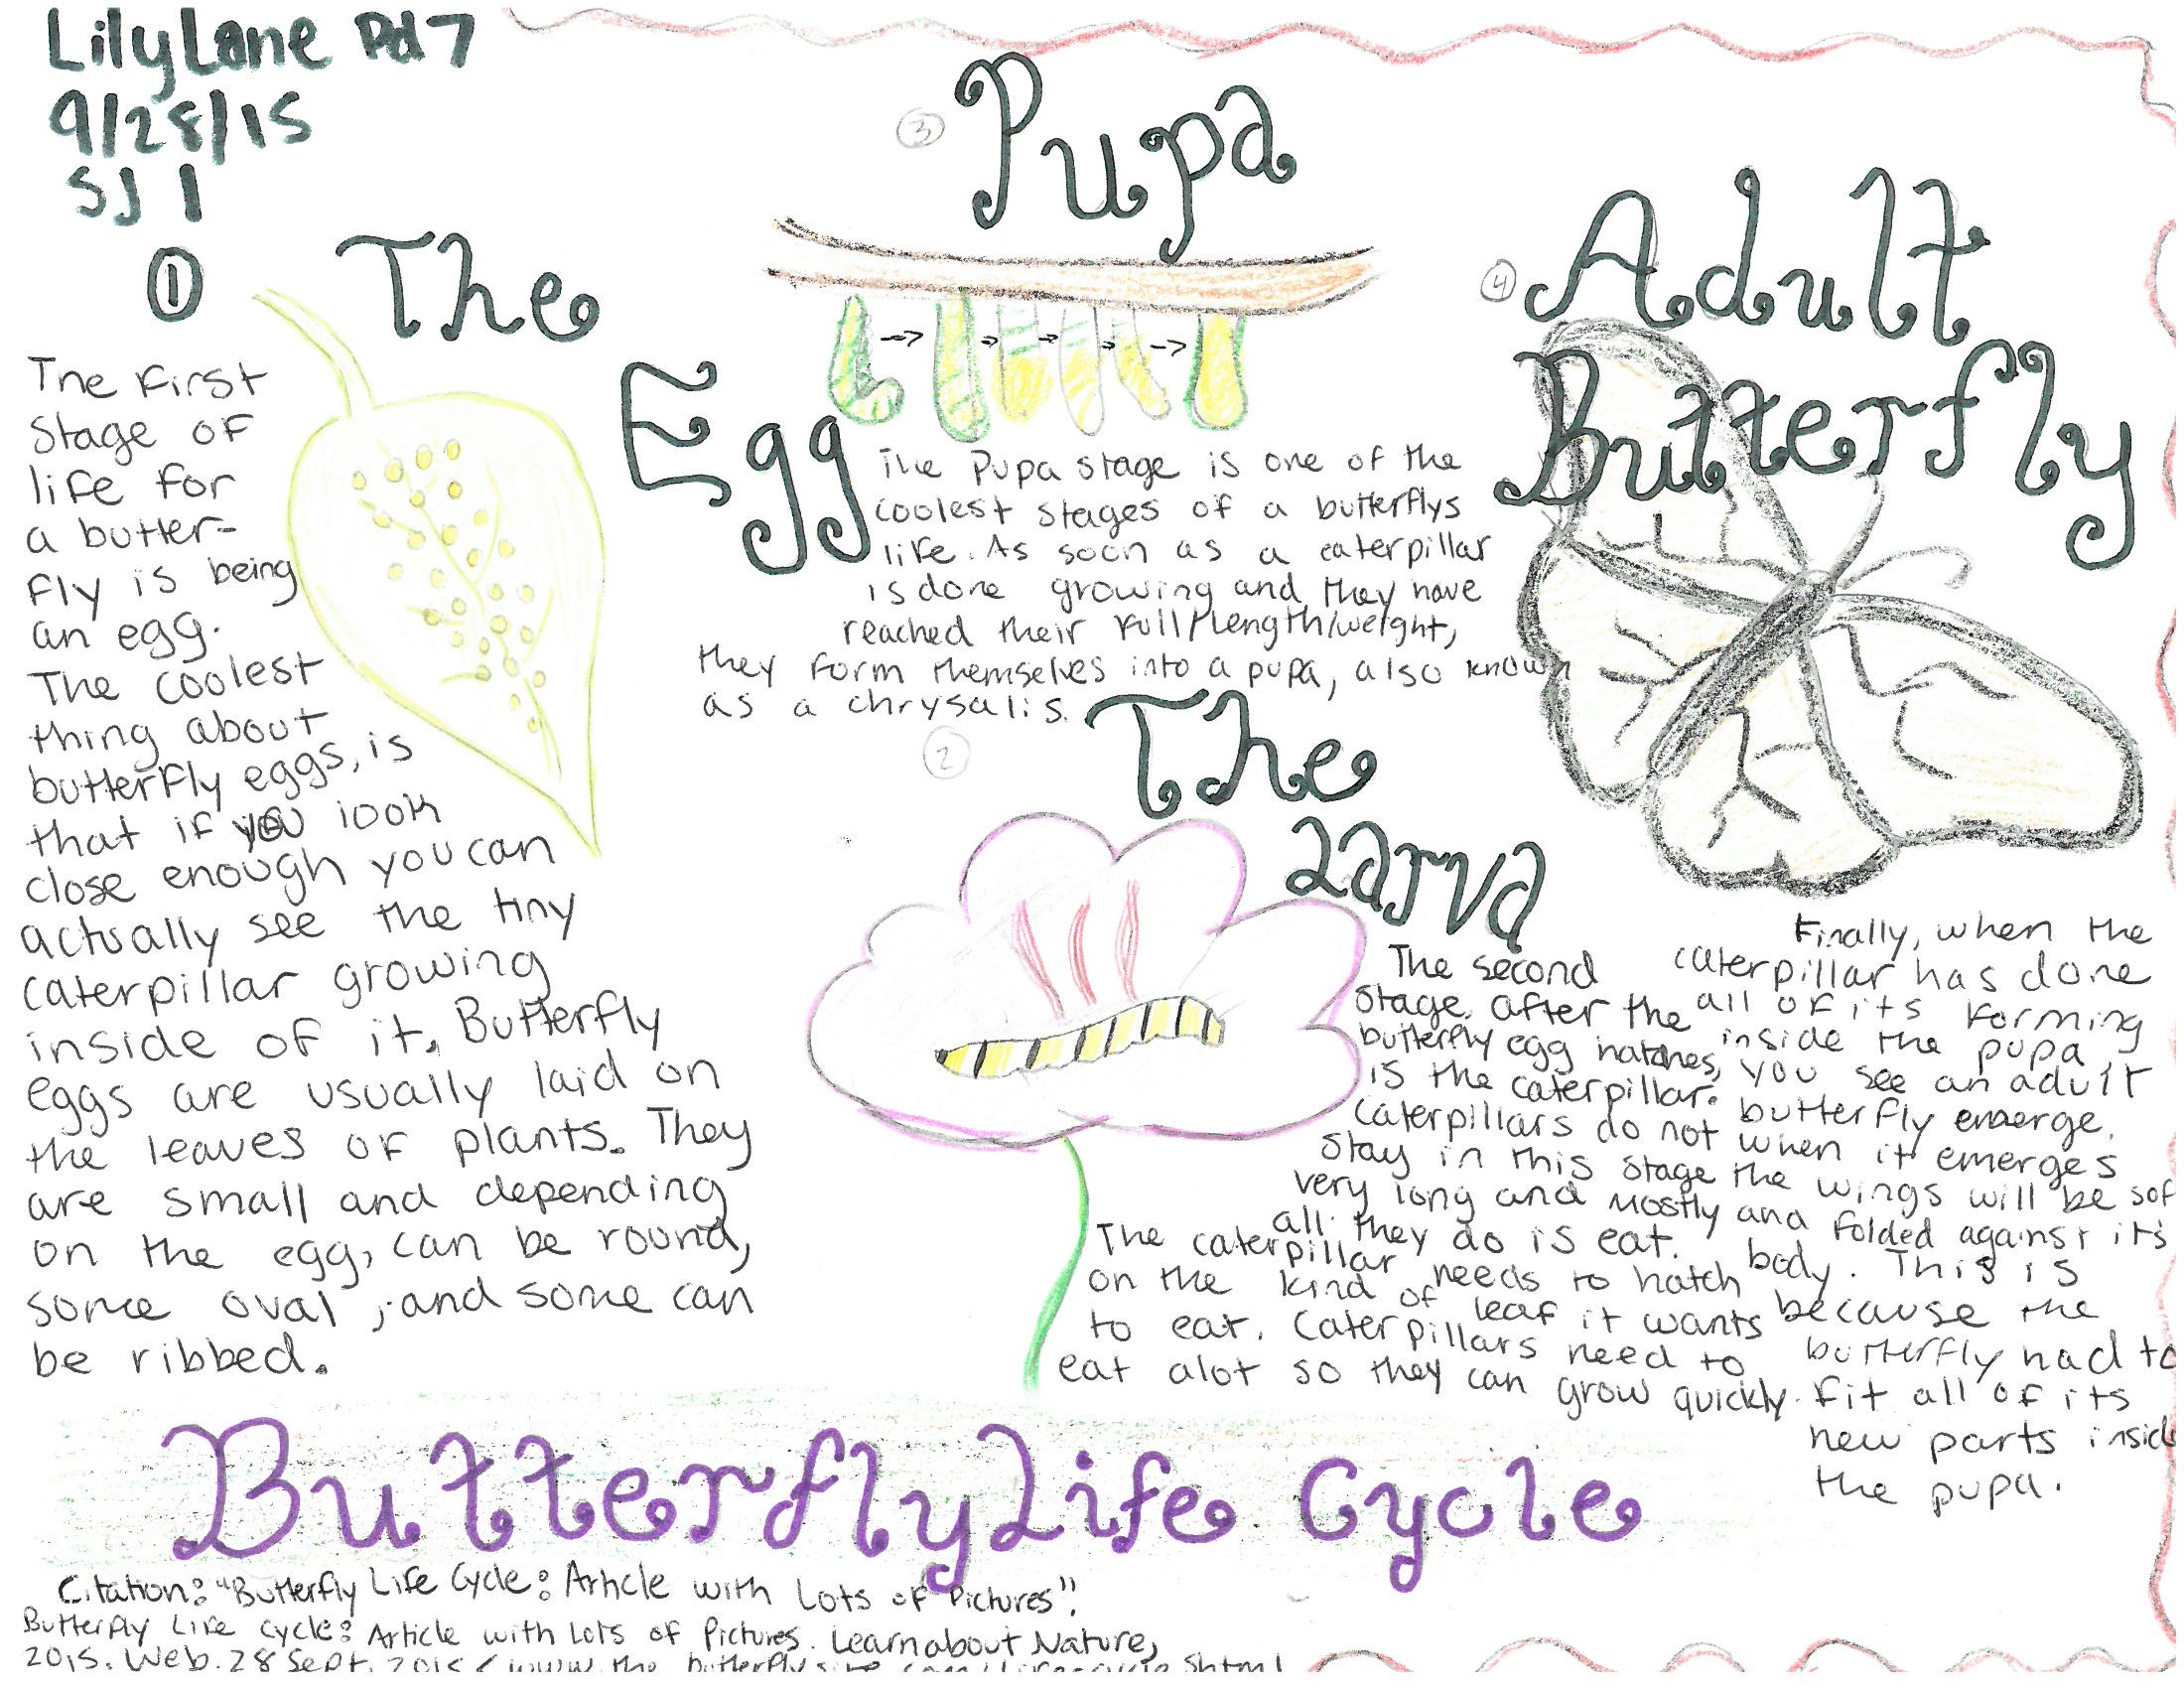 Lily Lane Pd 7
9/28/15
SJ 1
①
The
Egg
The First
Stage of
life for
a butter-
fly is being
an egg.
The coolest
thing about
butterfly eggs, is
that if you look
close enough you can
actually see the tiny
caterpillar growing
inside of it. Butterfly
eggs are usually laid on
the leaves of plants. They
are small and depending
on the egg, can be round,
some oval, and some can
be ribbed.
③
Pupa
The Pupa stage is one of the
coolest stages of a butterflys
life. As soon as a caterpillar
is done growing and they have
reached their full length/weight,
they form themselves into a pupa, also known
as a chrysalis.
②
The
Larva
The second
stage, after the
butterfly egg hatches,
is the caterpillar.
Caterpillars do not
stay in this stage
very long and mostly
all they do is eat.
The caterpillar needs to hatch
on the kind of leaf it wants
to eat. Caterpillars need to
eat alot so they can grow quickly.
④
Adult
Butterfly
Finally, when the
caterpillar has done
all of its forming
inside the pupa
you see an adult
butterfly emerge.
when it emerges
the wings will be sof
and folded against it's
body. This is
because the
butterfly had to
fit all of its
new parts inside
the pupa.
Butterfly Life Cycle
Citation: "Butterfly Life Cycle: Article with Lots of Pictures".
Butterfly Life Cycle: Article with Lots of Pictures. Learn about Nature,
2015. Web. 28 Sept. 2015 < www.the butterfly site.com/life-cycle.shtml